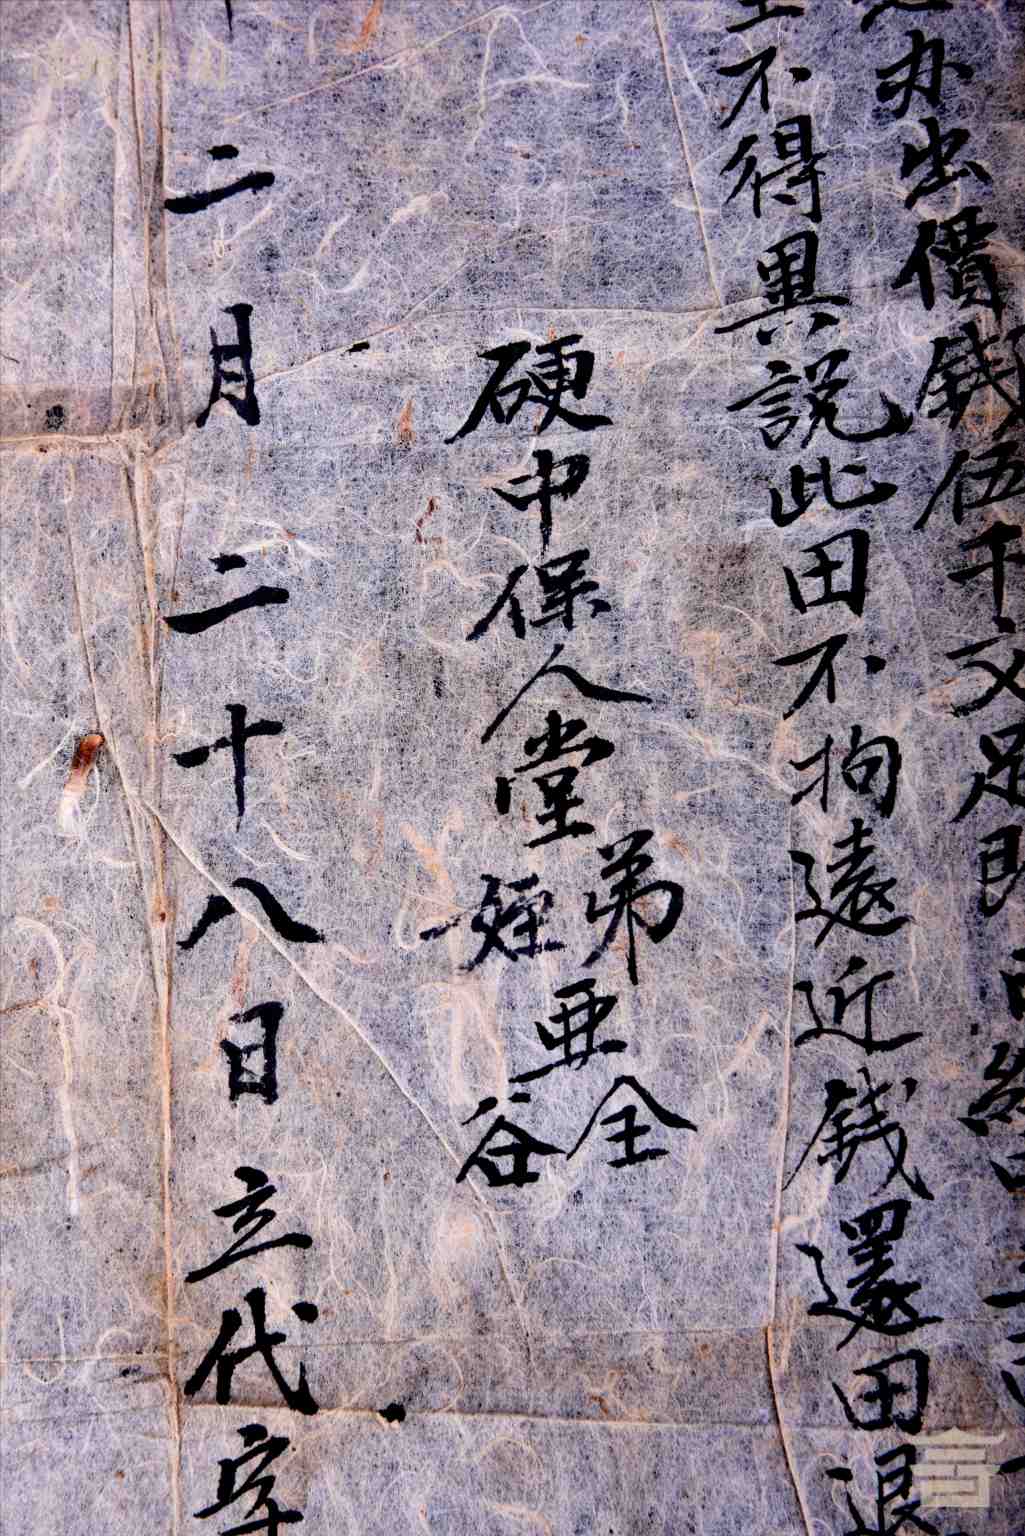 办出價錢伍千文足
不得異説此田不拘遠近錢還田退
硬中保人堂弟亜全
姪谷
二月二十八日立代字